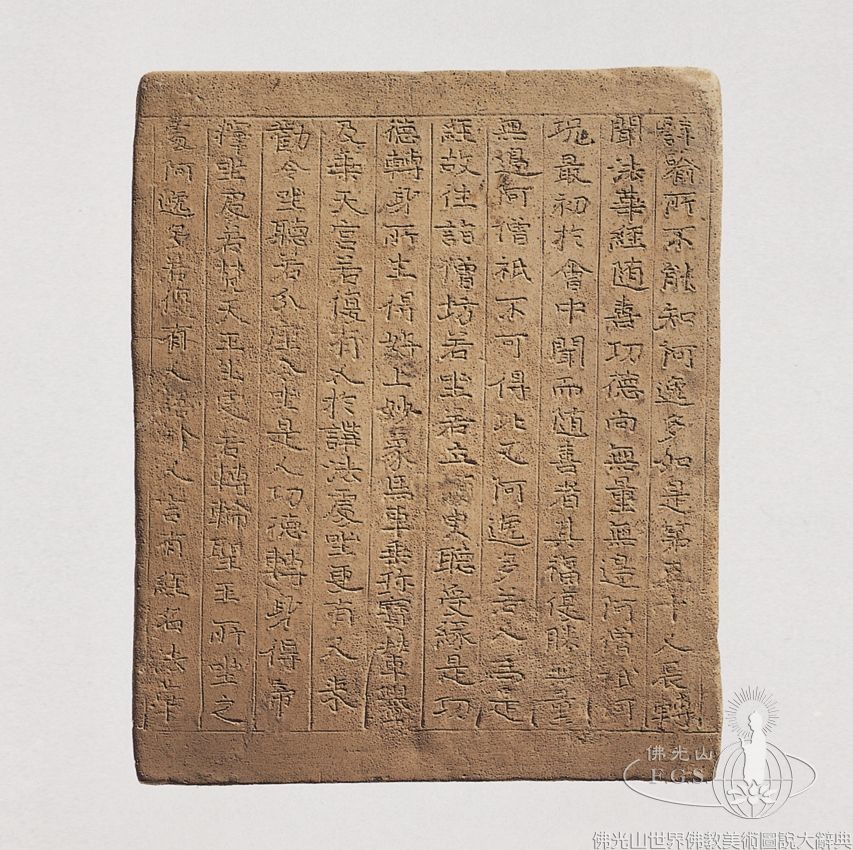 譬喻所不能知阿逸多如是第五十人展轉
聞法華經随喜功德尚無量無邊阿僧祇何
況最初於會中聞而随喜者其福復勝無量
無邊阿僧祇不可得比又阿逸多若人為是
經故往詣僧坊若坐若立須臾聽受緣是功
德轉身所生得好上妙象馬車乘珎寶輦轝
及乘天宮若復有人於講法處坐更有人来
勸令坐聽若分座令坐是人功德轉身得帝
釋坐處若梵天王坐處若轉輪聖王所坐之
處阿逸多若復有人語餘人言有經名法華
佛光山
F.G.S.
佛光山世界佛教美術圖說大辭典